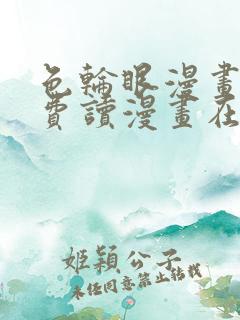 色輪眼漫畫
費讀漫畫在
姬穎公子
未任同意禁止轉載